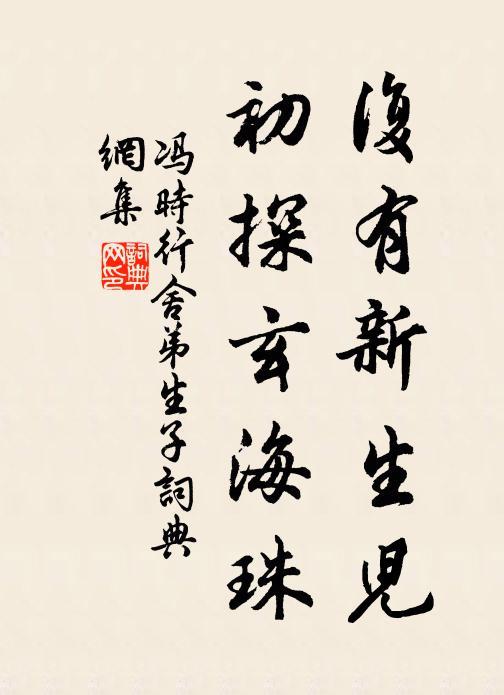 復有新生兒
初探玄海珠
冯時行舍弟生子詞典
網集
詞典網印